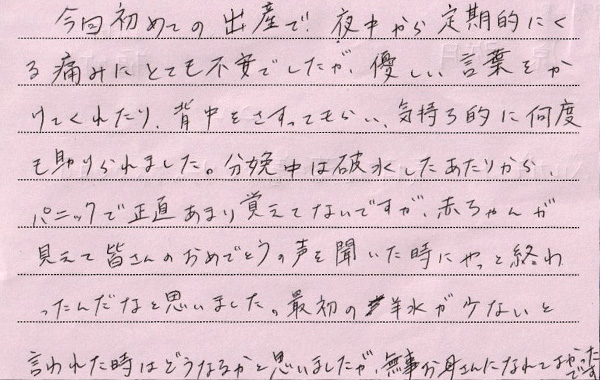 今回初めての出産で!夜中から定期的にく
る痛みにとても不安でしたが、優しい言葉をか
けてくれたり、背中をさすってもらい、気持ち的に何度
も助けられました。分娩中は破水したあたりから、
パニックで正直あまり覚えてないですが、赤ちゃんが
見えて皆さんのおめでとうの声を聞いた時にやっと終わ
ったんだなと思いました。最初の羊水が少ないと
言われた時はどうなるかと思いましたが、無事お母さんになれてよかった
です